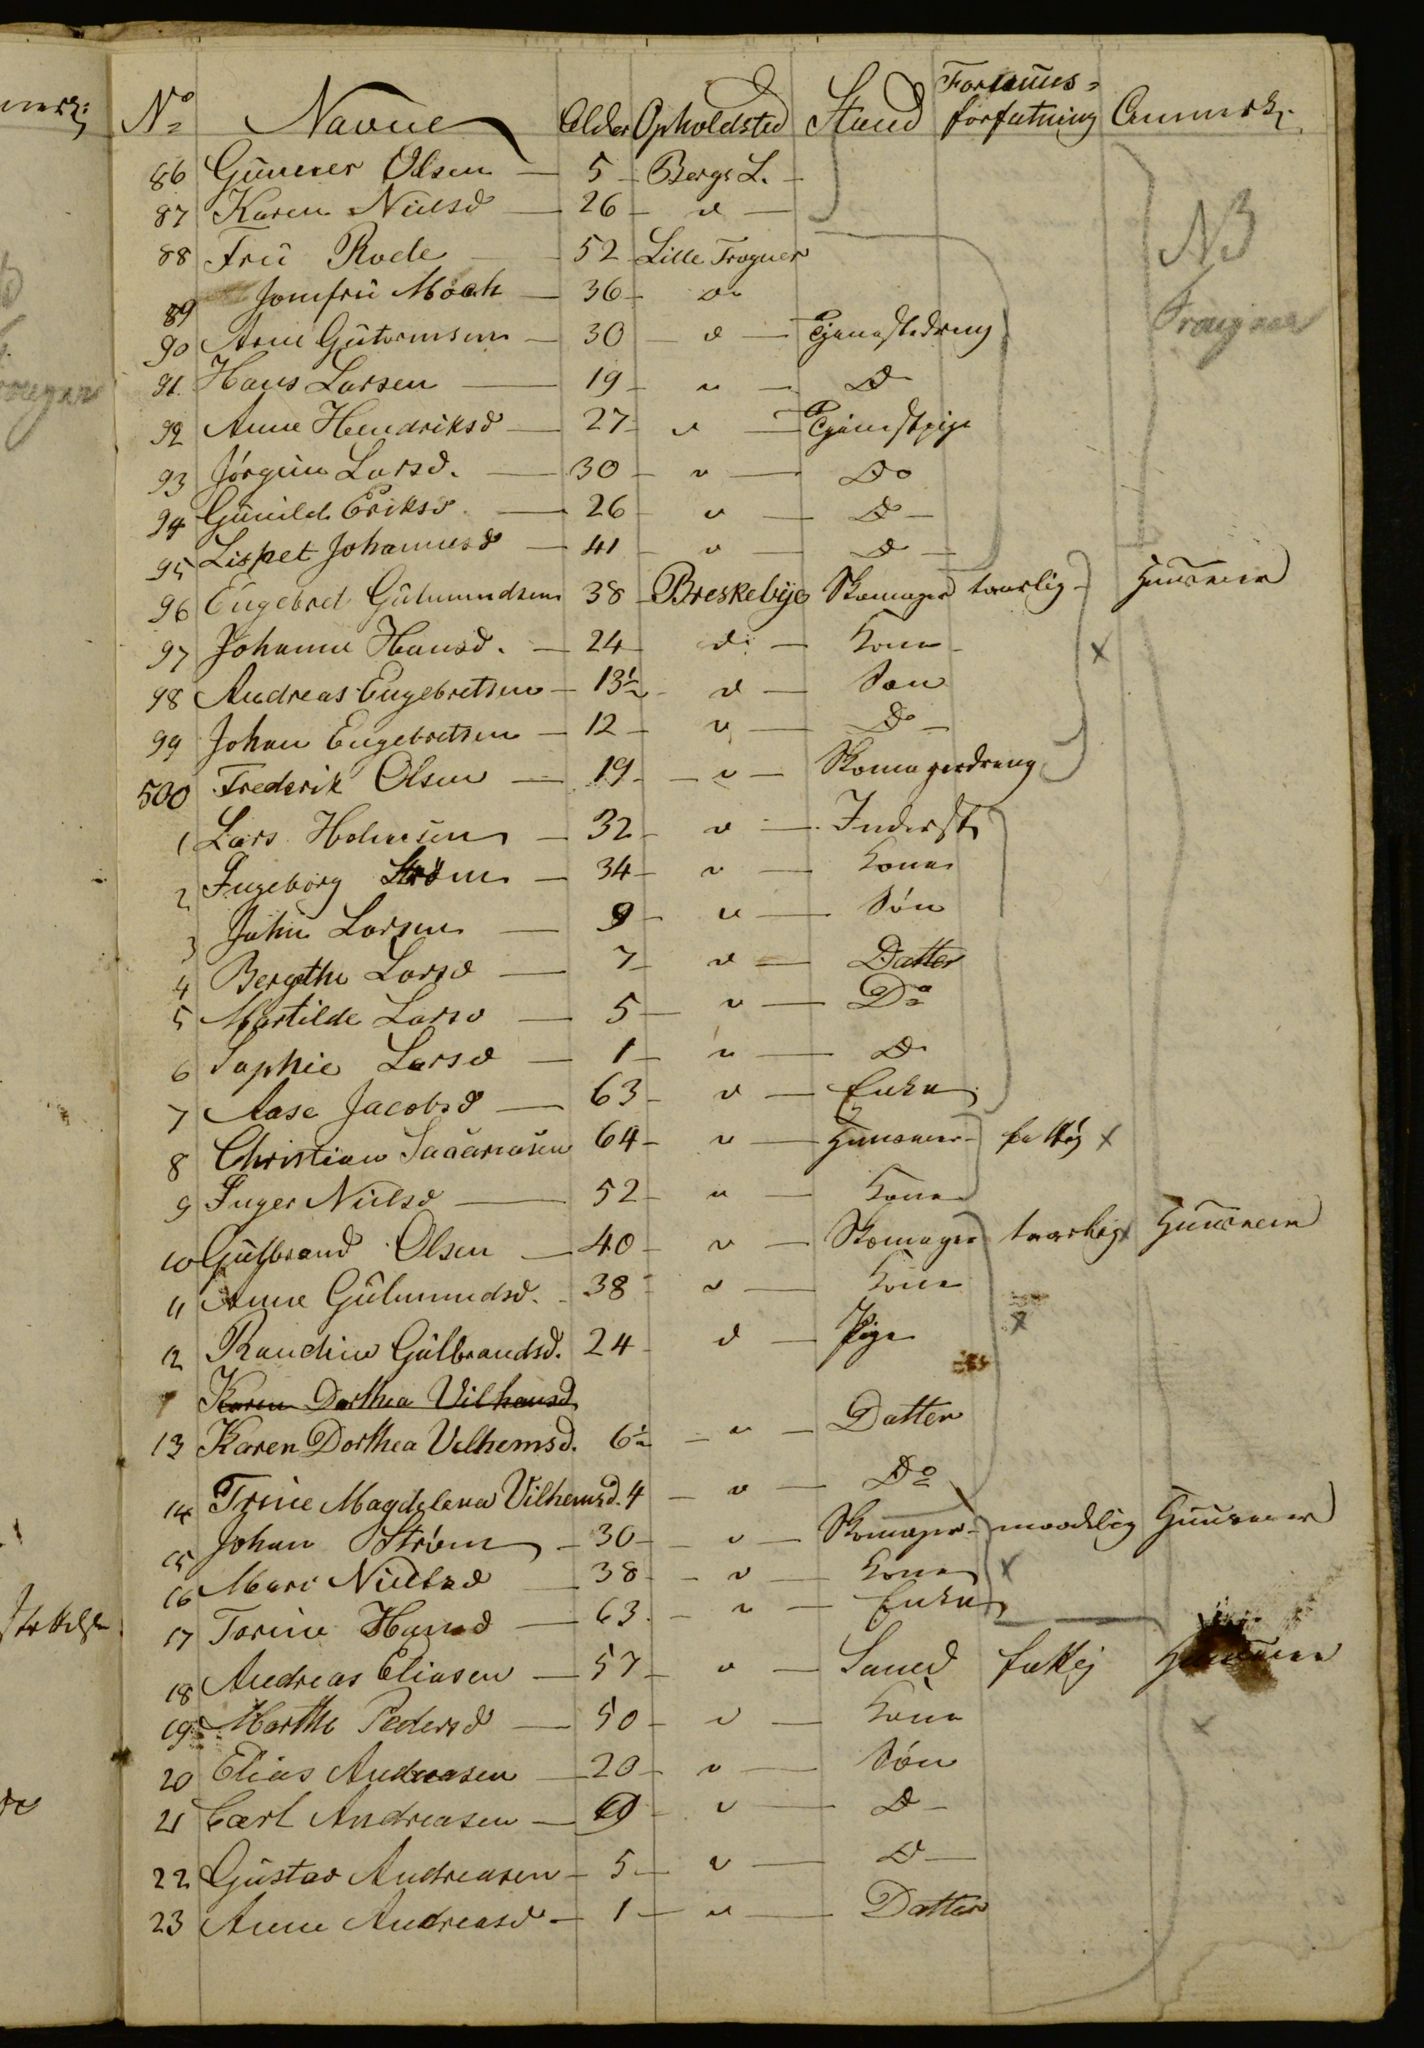 No Navne Alder Opholdsted Stand Formues= forfatning Anmerk.
86 Gunner Olsen 5 Bergs L.
87 Karen Nielsd 26 d
NB
88 Fru Rode 52 Lille Frogner
89 Jomfru Moch 36 do
Frogner
90 Arne Gutormsen 30 d Tjenestedreng
91 Hans Larsen 19 " D
92 Anne Hendriksd 27 " Tjenestpige
93 Jörgine Larsd. 30 " Do
94 Gunild Eriksd. 26 " D
95 Lispet Johannesd 41 " D
96 Engebret Gulmundsen 38 Breskebye Skomager taarlig Huusmen
97 Johanne Hansd. 24 d: Kone x
98 Andreas Engebretsen 13½ d Søn
99 Johan Engebretsen 12 " Do
500 Frederik Olsen 19 " Skomagerdreng
1 Lars Holmsen 32 " Inderst
2 Ingeborg Strøm 34 " Kone
3 Johu Larsen 9 " Søn
4 Bergethe Larsd 7 d Datter
5 Martilde Larsd 5 " Do
6 Sophie Larsd 1 " D
7 Aase Jacobsd 63 d Enke
8 Christian 64 " Huusmen fattig x
9 Inger Nielsd 52 " Kone
10 Gulbrand Olsen 40 " Skomager taarlig x Huusmen
11 Anne Gulmundsd. 38 " Kone
12 Randine Gulbrandsd. 24 d Pige x
Karen Dorthea Vilhemsd
13 Karen Dorthea Vilhemsd. 6½ " Datter
14 Trine Magdelena Vilhemsd. 4 " Do
15 Johan Strøm 30 " Skomager maadelig Huusmen
16 Mari Nielsd 38 " Kone x
17 Torine Hansd 63 " Enke
18 Andreas Eliasen 57 " fattig Huusmen
19 Marthe Pedersd 50 " Kone x
20 Elias Andreasen 20 " Søn
21 Carl Andreasen " D
22 Gustav Andreasen 5 " D
23 Anne Andreasd 1 " Datter